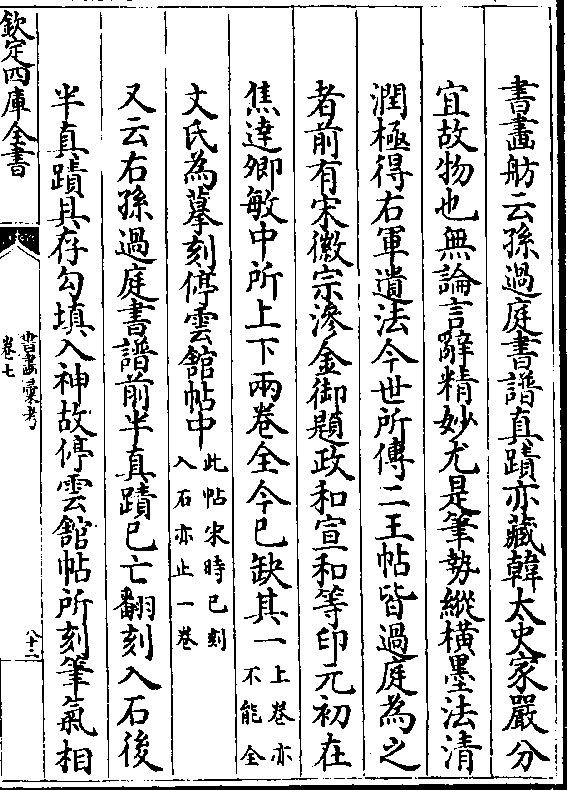 書畫舫云孫過庭書譜真蹟亦藏韓太史家嚴分
宜故物也無論言辭精妙尤是筆勢縱橫墨法清
潤極得右軍遺法今世所傳二王帖皆過庭為之
者前有宋徽宗滲金御題政和宣和等印元初在
焦達卿敏中所上下兩卷全今已缺其一上卷亦不能全
文氏為摹刻停雲館帖中此帖宋時已刻入石亦止一卷
又云右孫過庭書譜前半真蹟已亡翻刻入石後
半真蹟具存勾填入神故停雲館帖所刻筆氣相
欽定四庫全書
書畫彙考
卷七